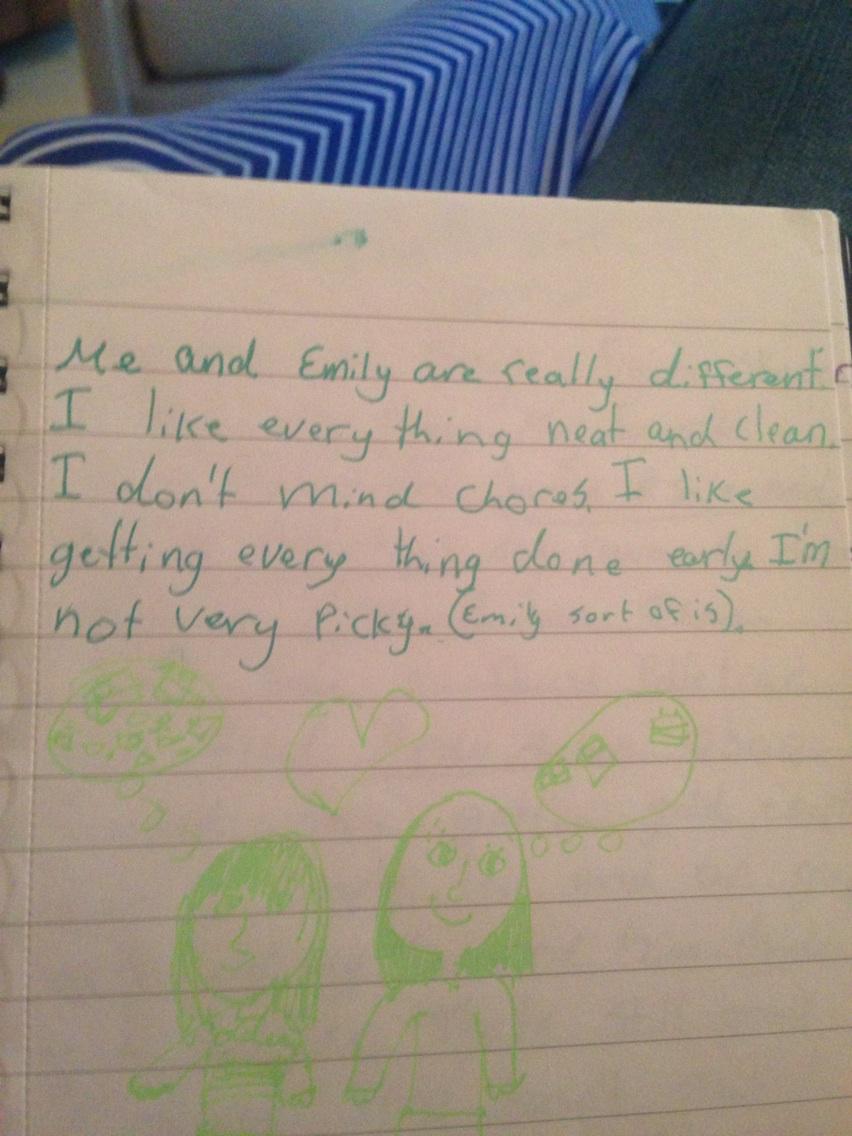 Me and Emily are really different.
I like every thing neat and clean.
I don't mind chores. I like
getting every thing done early. I'm
not very Picky. (Emily sort of is).